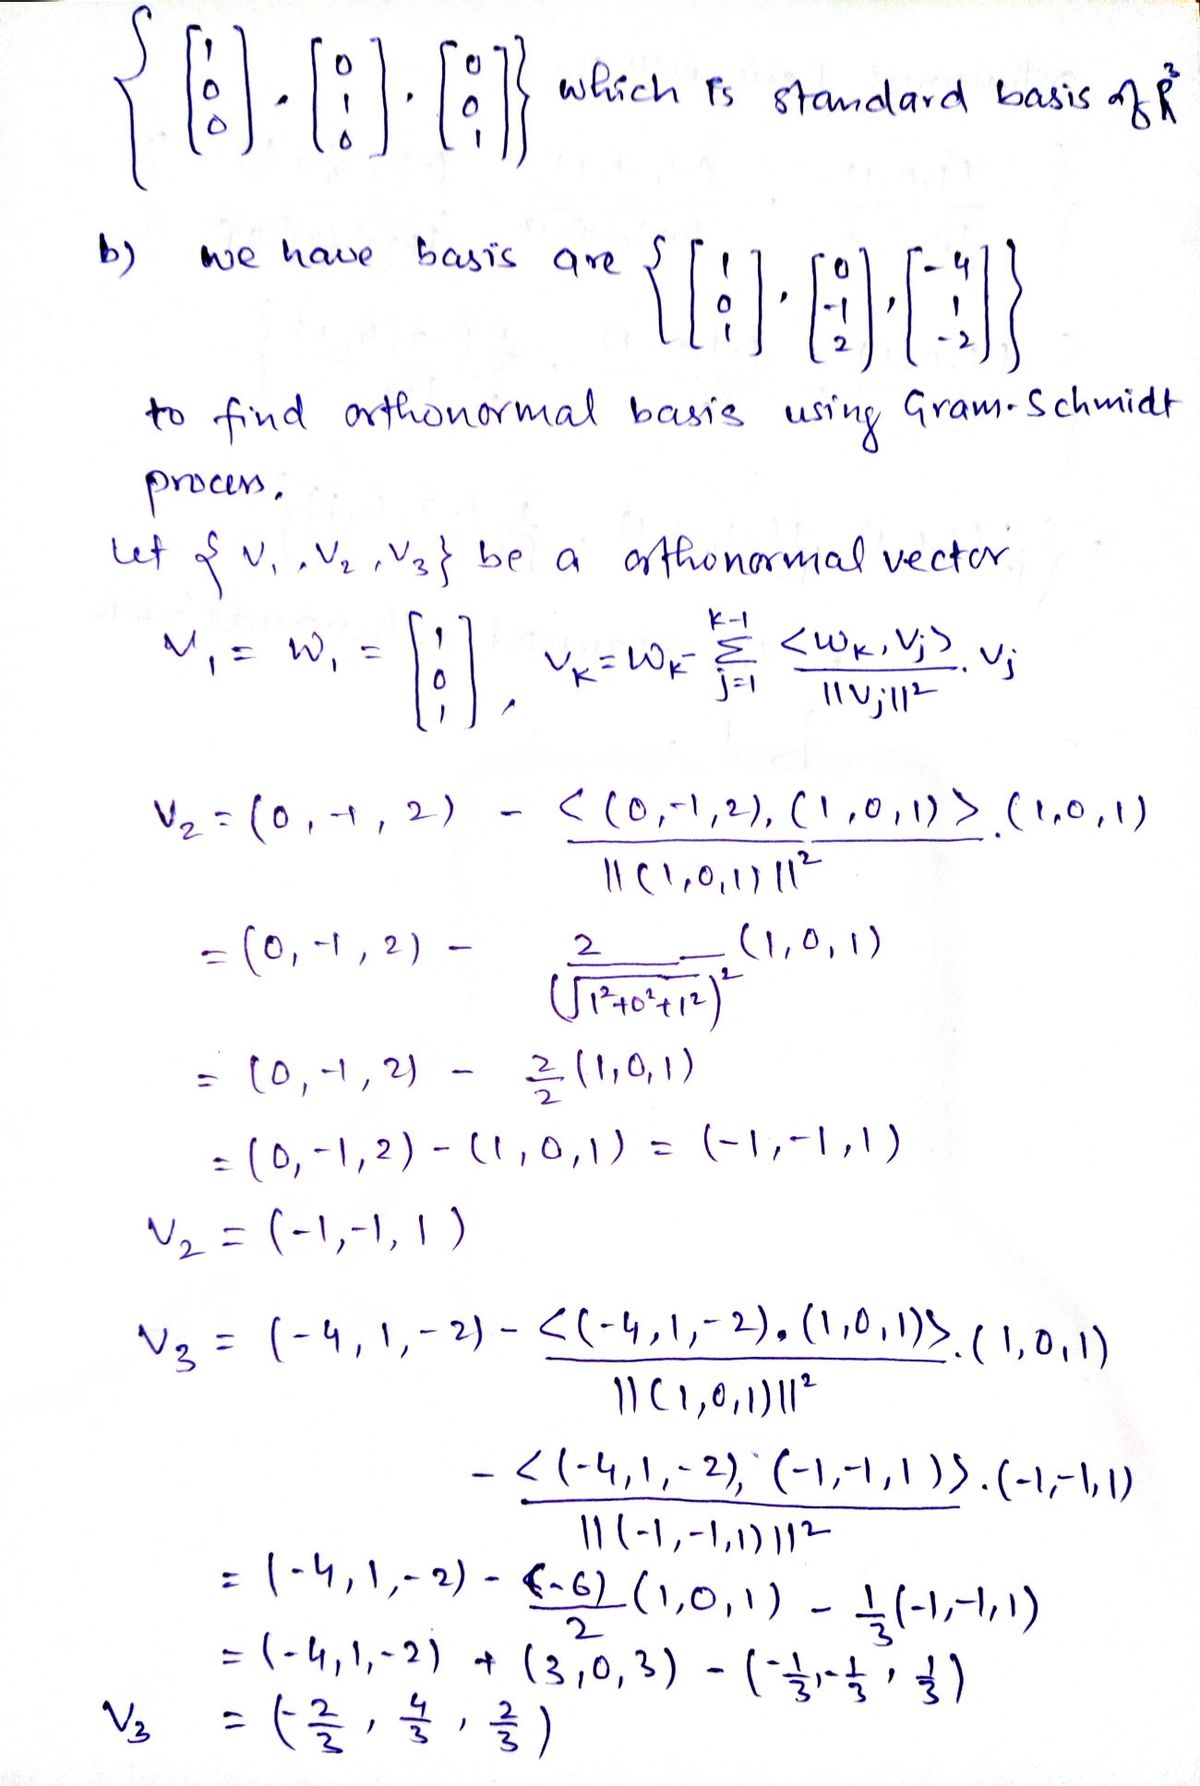 { [1 0 0] , [0 1 0] , [0 0 1] } which is standard basis of R³
b) we have basis are { [1 0 1] , [0 -1 2] , [-4 1 -2] }
to find orthonormal basis using Gram-Schmidt
process.
Let { V₁ , V₂ , V₃ } be a orthonormal vector
V₁ = W₁ = [1 0 1] , Vₖ = Wₖ - Σ_{j=1}^{k-1} <Wₖ, Vⱼ> / ||Vⱼ||² . Vⱼ
V₂ = (0, -1, 2) - <(0,-1,2), (1,0,1)> / ||(1,0,1)||² . (1,0,1)
= (0, -1, 2) - 2 / (√(1²+0²+1²))² (1,0,1)
= (0, -1, 2) - 2/2 (1,0,1)
= (0, -1, 2) - (1,0,1) = (-1,-1,1)
V₂ = (-1,-1, 1)
V₃ = (-4, 1, -2) - <(-4,1,-2) . (1,0,1)> / ||(1,0,1)||² . (1,0,1)
- <(-4,1,-2), (-1,-1,1)> / ||(-1,-1,1)||² . (-1,-1,1)
= (-4,1,-2) - (-6)/2 (1,0,1) - 1/3 (-1,-1,1)
= (-4,1,-2) + (3,0,3) - (-1/3, -1/3, 1/3)
V₃ = (-2/3, 4/3, 2/3)